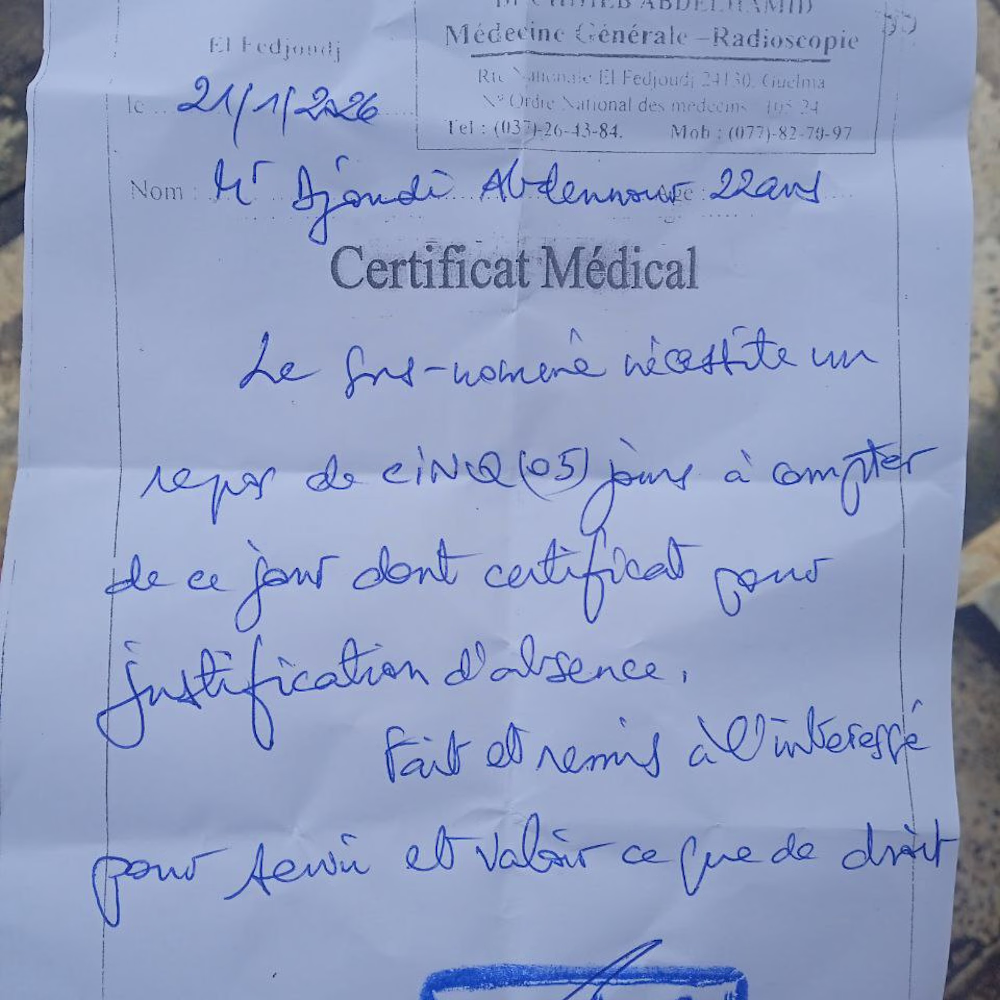 ABDELHAMID
Médecine Générale –Radioscopie
El Fedjoudj
Rte Nationale El Fedjoudj 24130, Guelma
le ... 21/1/2026
N° Ordre National des médecins
Tel : (037)-26-43-84. Mob : (077)-82-79-97
Nom : Mr Djoudi Abdennour 22ans
Certificat Médical
Le sus-nommé nécessite un
repos de CINQ (05) jours à compter
de ce jour dont certificat pour
justification d'absence.
Fait et remis à l'intéressé
pour servir et valoir ce que de droit